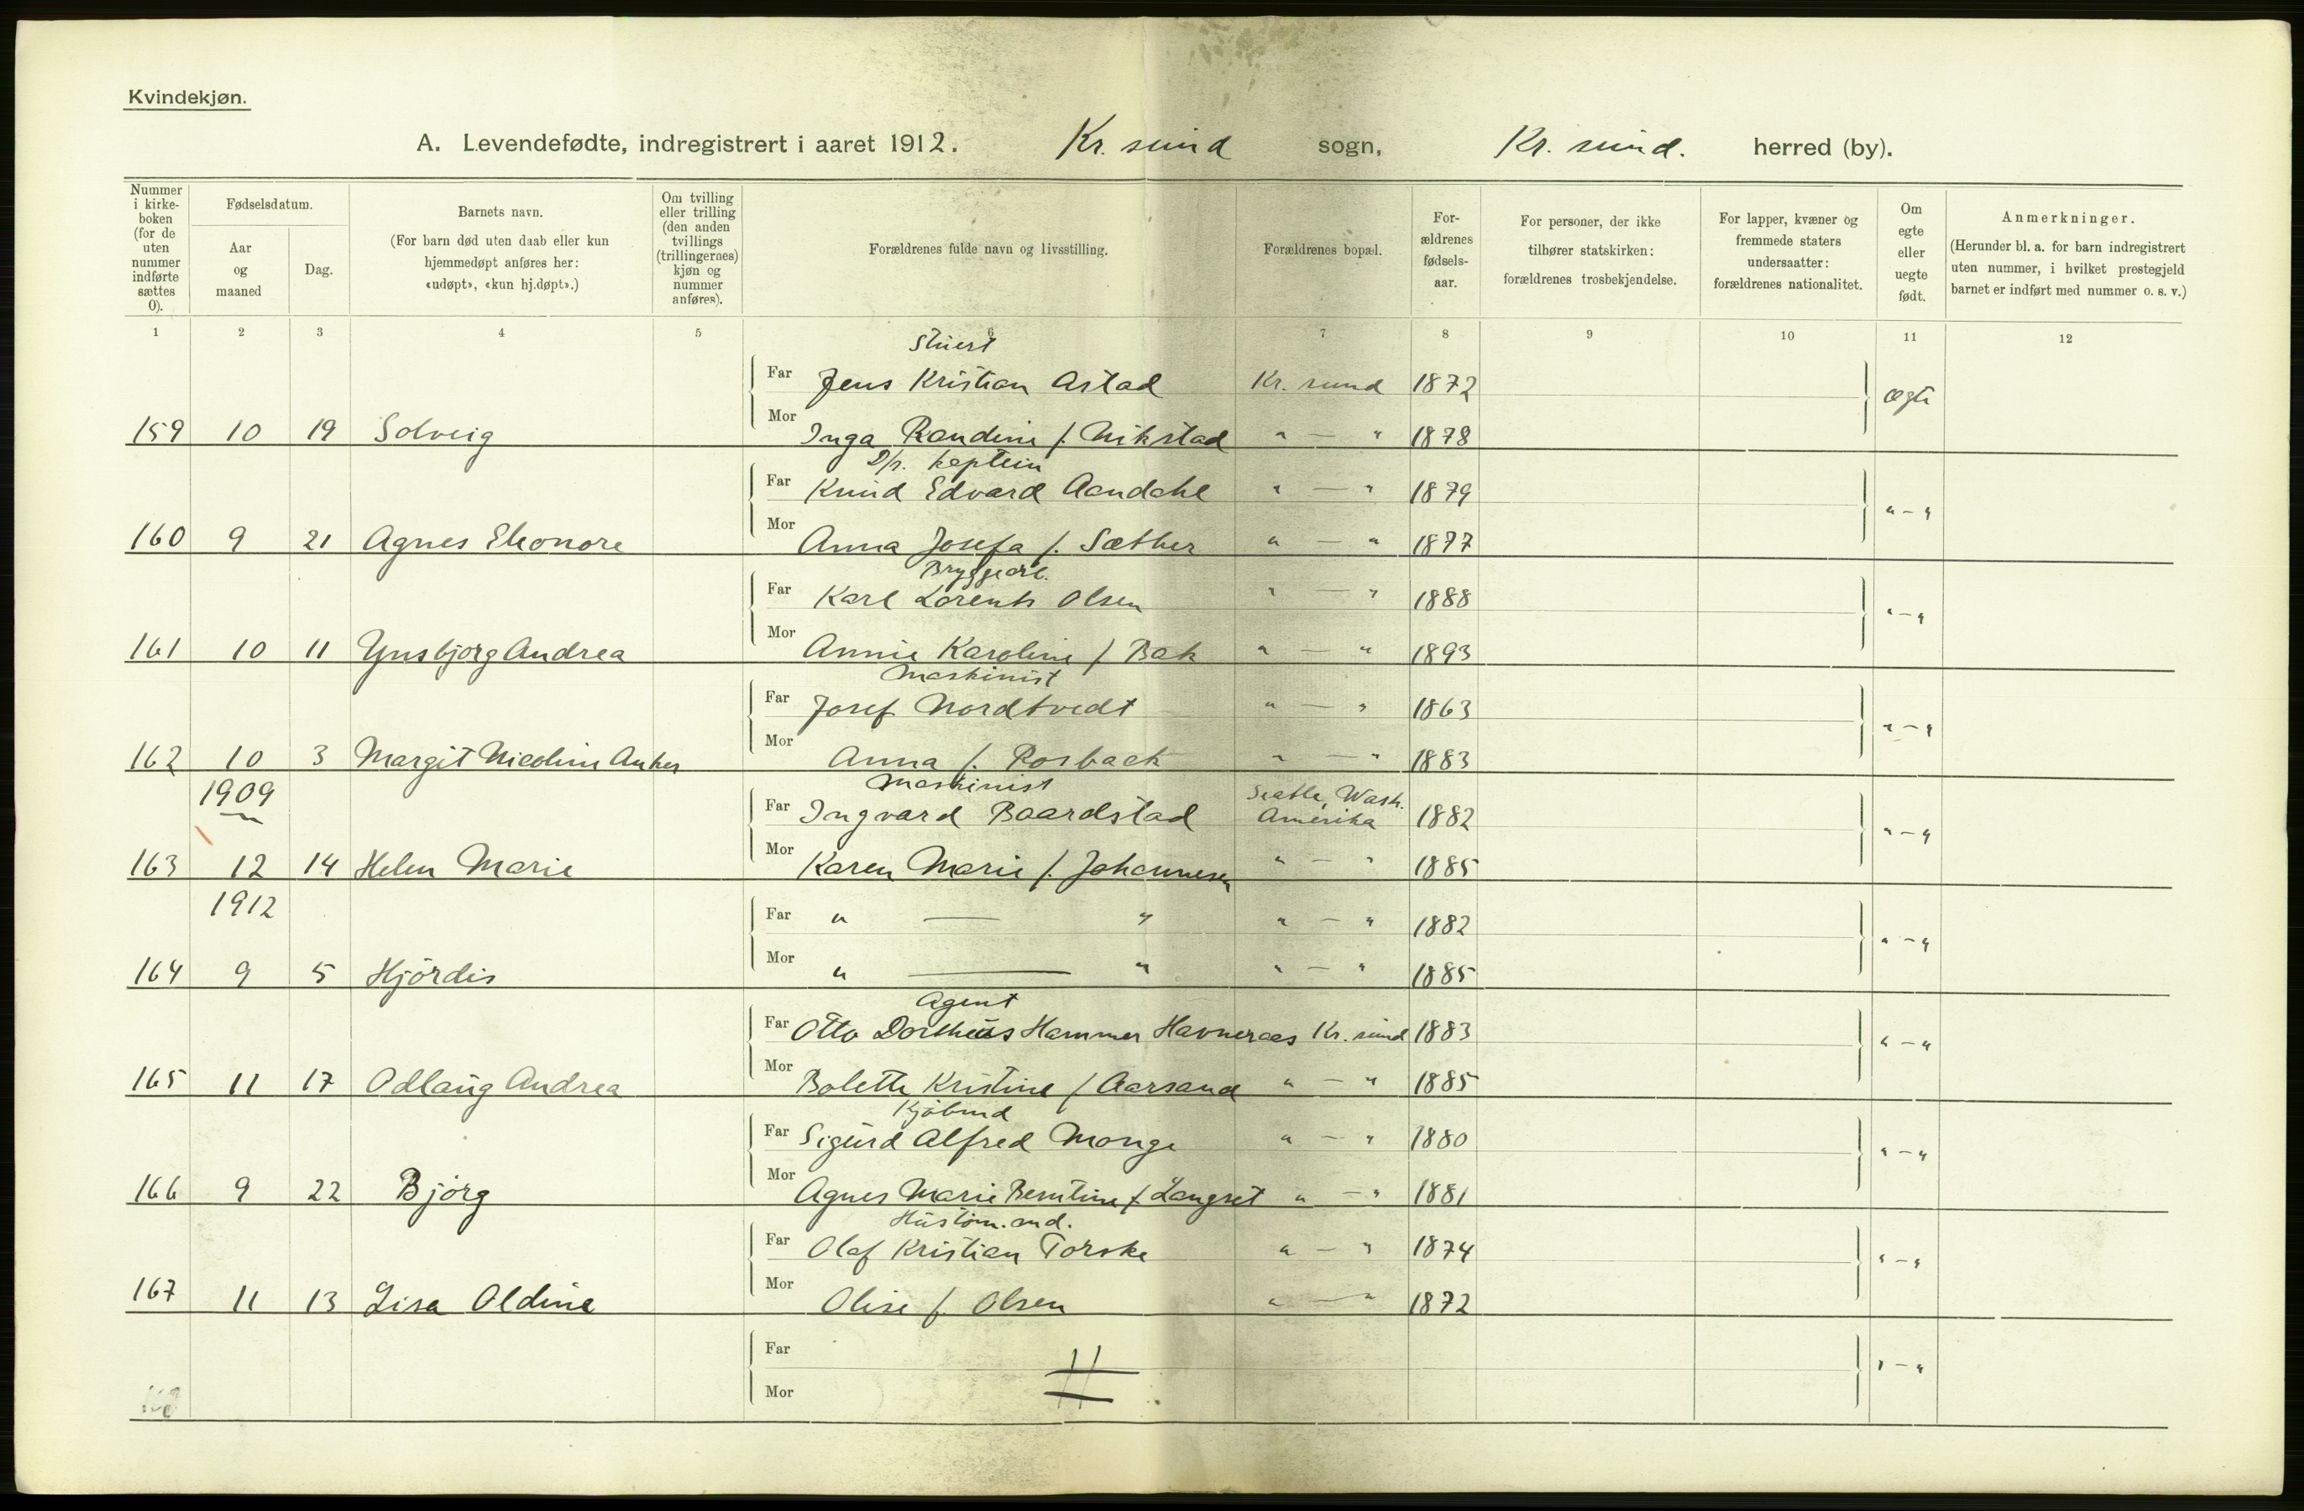 Kvindekjøn.
A. Levendefødte, indregistrert i aaret 1912. Kr. sund sogn, Kr. sund. herred (by).
Nummer i kirke-boken (for de uten nummer indførte sættes 0).
Fødselsdatum.
Aar og maaned
Dag.
Barnets navn.
(For barn død uten daab eller kun hjemmedøpt anføres her: «udøpt», «kun hj.døpt».)
Om tvilling eller trilling (den anden tvillings (trillingernes) kjøn og nummer anføres).
Forældrenes fulde navn og livsstilling.
Forældrenes bopæl.
For-ældrenes fødsels-aar.
For personer, der ikke tilhører statskirken: forældrenes trosbekjendelse.
For lapper, kvæner og fremmede staters undersaatter: forældrenes nationalitet.
Om egte eller uegte født.
Anmerkninger.
(Herunder bl. a. for barn indregistrert uten nummer, i hvilket prestegjeld barnet er indført med nummer o. s. v.)
1 2 3 4 5 6 7 8 9 10 11 12
Stuert
Far Jens Kristian Astad Kr. sund 1872 Ægte
159 10 19 Solveig Mor Inga Randine f. Vikstad " — " 1878
D/s. kaptein
Far Knud Edvard Aandahl " — " 1879 " — "
160 9 21 Agnes Eleonore Mor Anna Josefa f. Sæther " — " 1877
Bryggearb.
Far Karl Lorents Olsen " — " 1888 " — "
161 10 11 Ynsbjørg Andrea Mor Annie Karoline f Bak " — " 1893
Maskinist
Far Josef Nordtvedt " — " 1863 " — "
162 10 3 Margit Nicoline Anker Mor Anna f. Rosback " — " 1883
1909 Maskinist
Far Ingvard Baardstad Seatle, Wash. Amerika 1882 " — "
163 12 14 Helen Marie Mor Karen Marie f. Johannesen " — " 1885
1912 Far " — " " — " 1882 " — "
164 9 5 Hjördis Mor " — " " — " 1885
Agent
Far Otto Dortheus Hammer Havneraas Kr. sund 1883 " — "
165 11 17 Odlaug Andrea Mor Bolette Kristine f Aarsand " — " 1885
Kjöbmd
Far Sigurd Alfred Monge " — " 1880 " — "
166 9 22 Bjørg Mor Agnes Marie Berntine f Langset " — " 1881
Hustöm.
Far Olaf Kristian Torske " — " 1874 " — "
167 11 13 Lisa Oldine Mor Olise f. Olsen " — " 1872
Far " — "
168 Mor